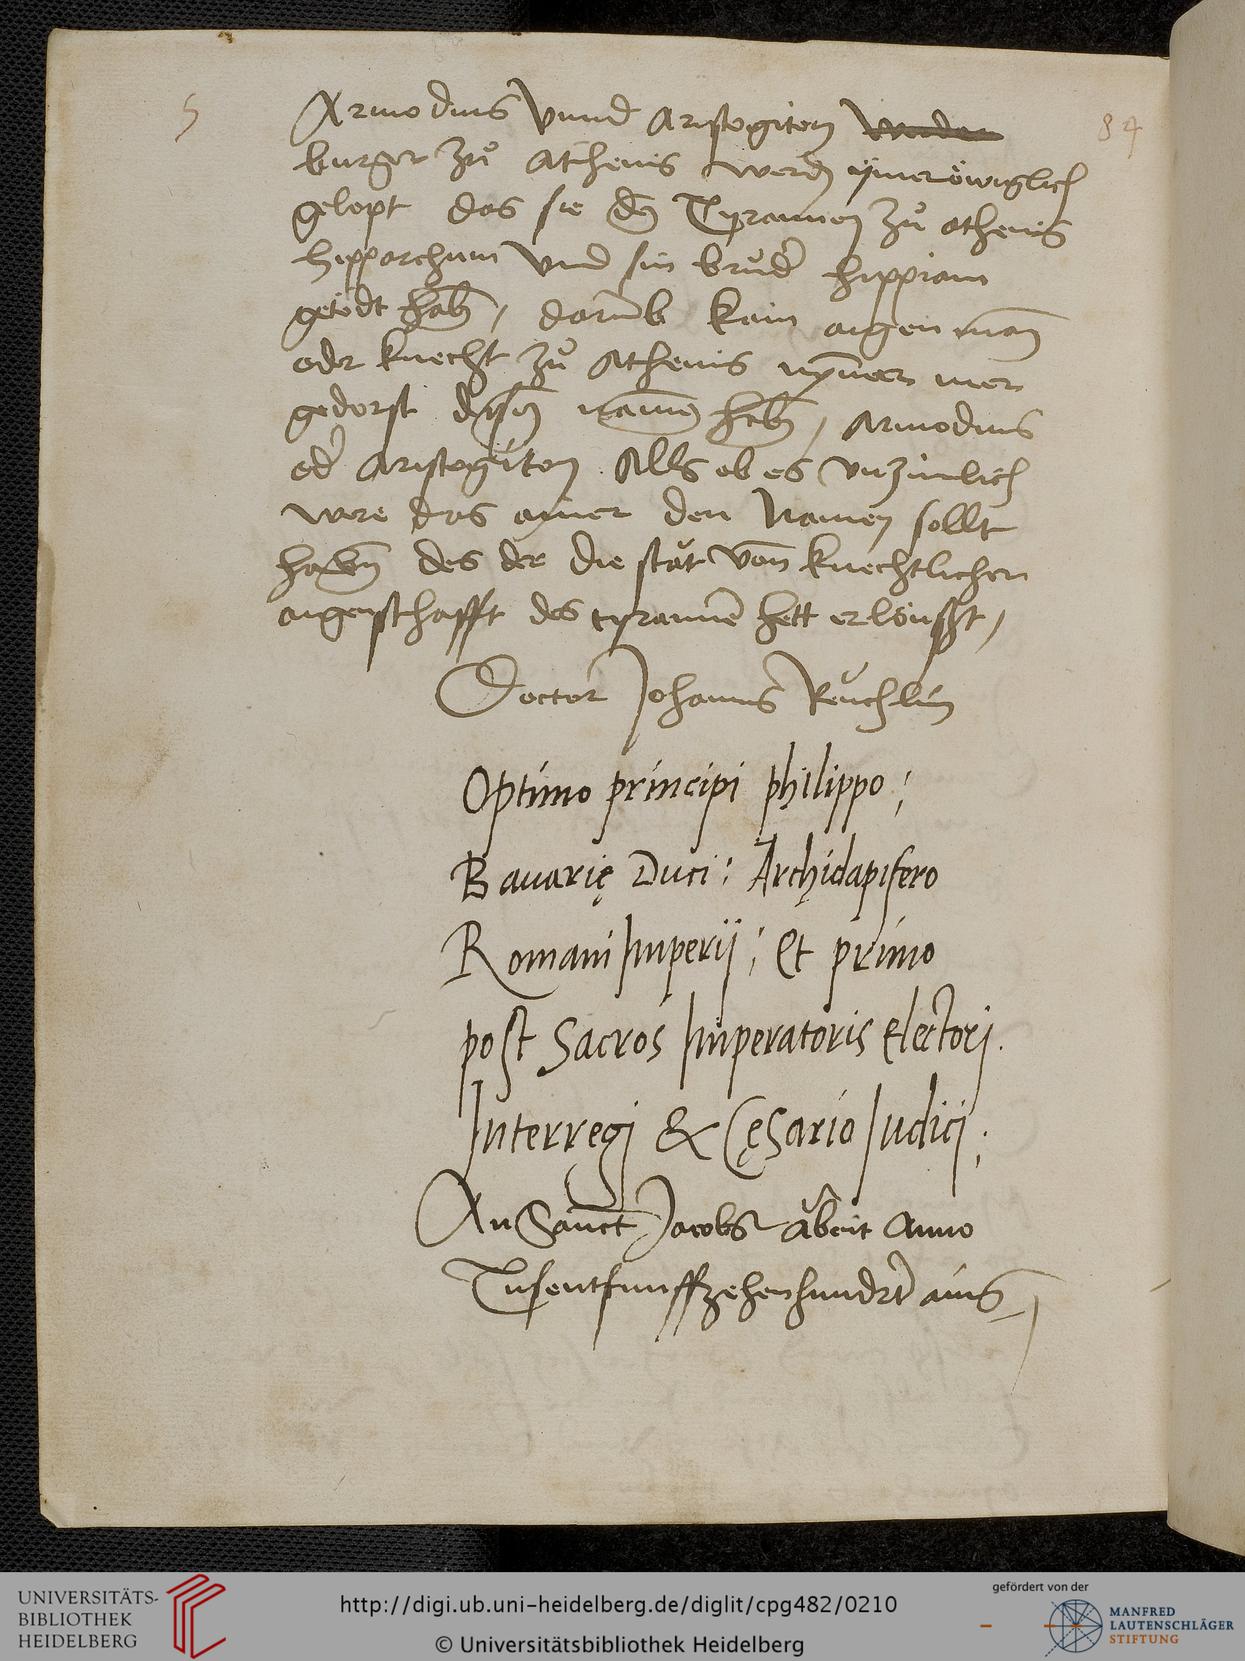 5
84
Armodius vnnd Aristogiton
burger zů Athenis werdē ÿmer öwiglich
gelopt das sie dē Tyrannen zů athenis
hipparchum vnd sin brůdʼ hippiam
getödt habē, darūb kain aigen man
oder knecht zů Athenis nÿmer mer
gedorst disē namē habē, Armodius
odʼ Aristogiton Alls ob es vnzimlich
were das ainer den Namen sollt
haben des der die stat von knechtlicher
aigenschafft des tyrannē hett erlößt,
Doctor Johanns Reuchlin
Optimo principi philippo;
Bauarię Duci: Archidapifero
Romani Imperij; Et primo
post Sacros Imperatoris Electori.
Interregi & Cęsario Iudici;
An Sanct Jacobs Abent Anno
Tusentfunffzehenhundert ains
UNIVERSITÄTS-
BIBLIOTHEK
HEIDELBERG
http://digi.ub.uni-heidelberg.de/diglit/cpg482/0210
© Universitätsbibliothek Heidelberg
gefördert von der
MANFRED
LAUTENSCHLÄGER
STIFTUNG